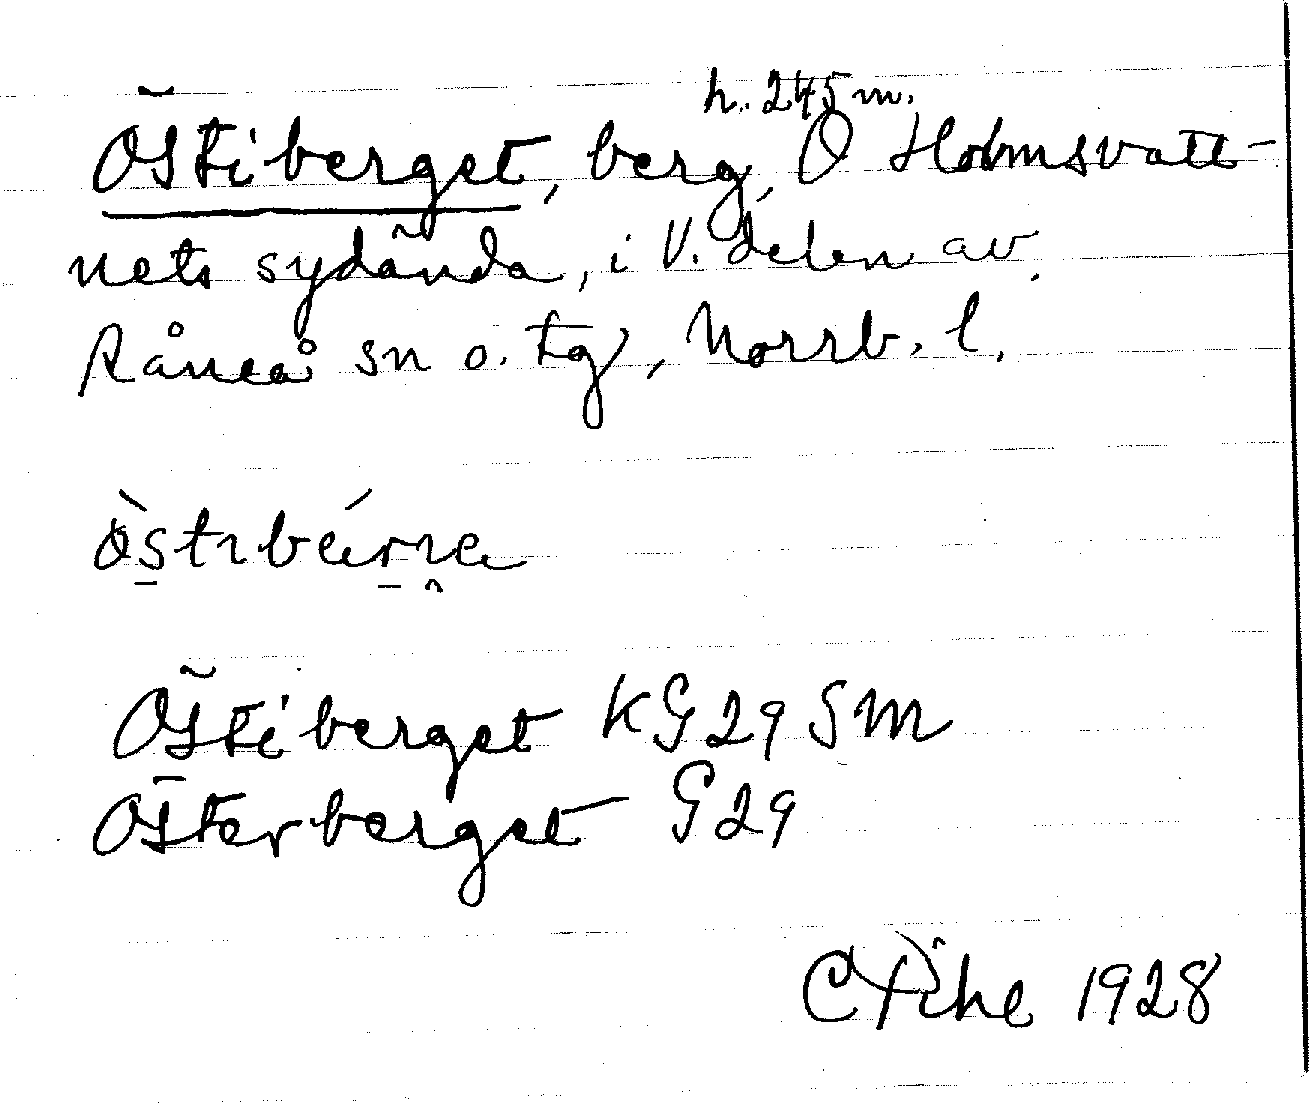 h. 245 m.
Östiberget, berg, Ö Holmsvatt-
nets sydända, i V. delen av
Råneå sn o. tg, Norrb. l.
Östiberget KG29 SM
Österberget G29
1928